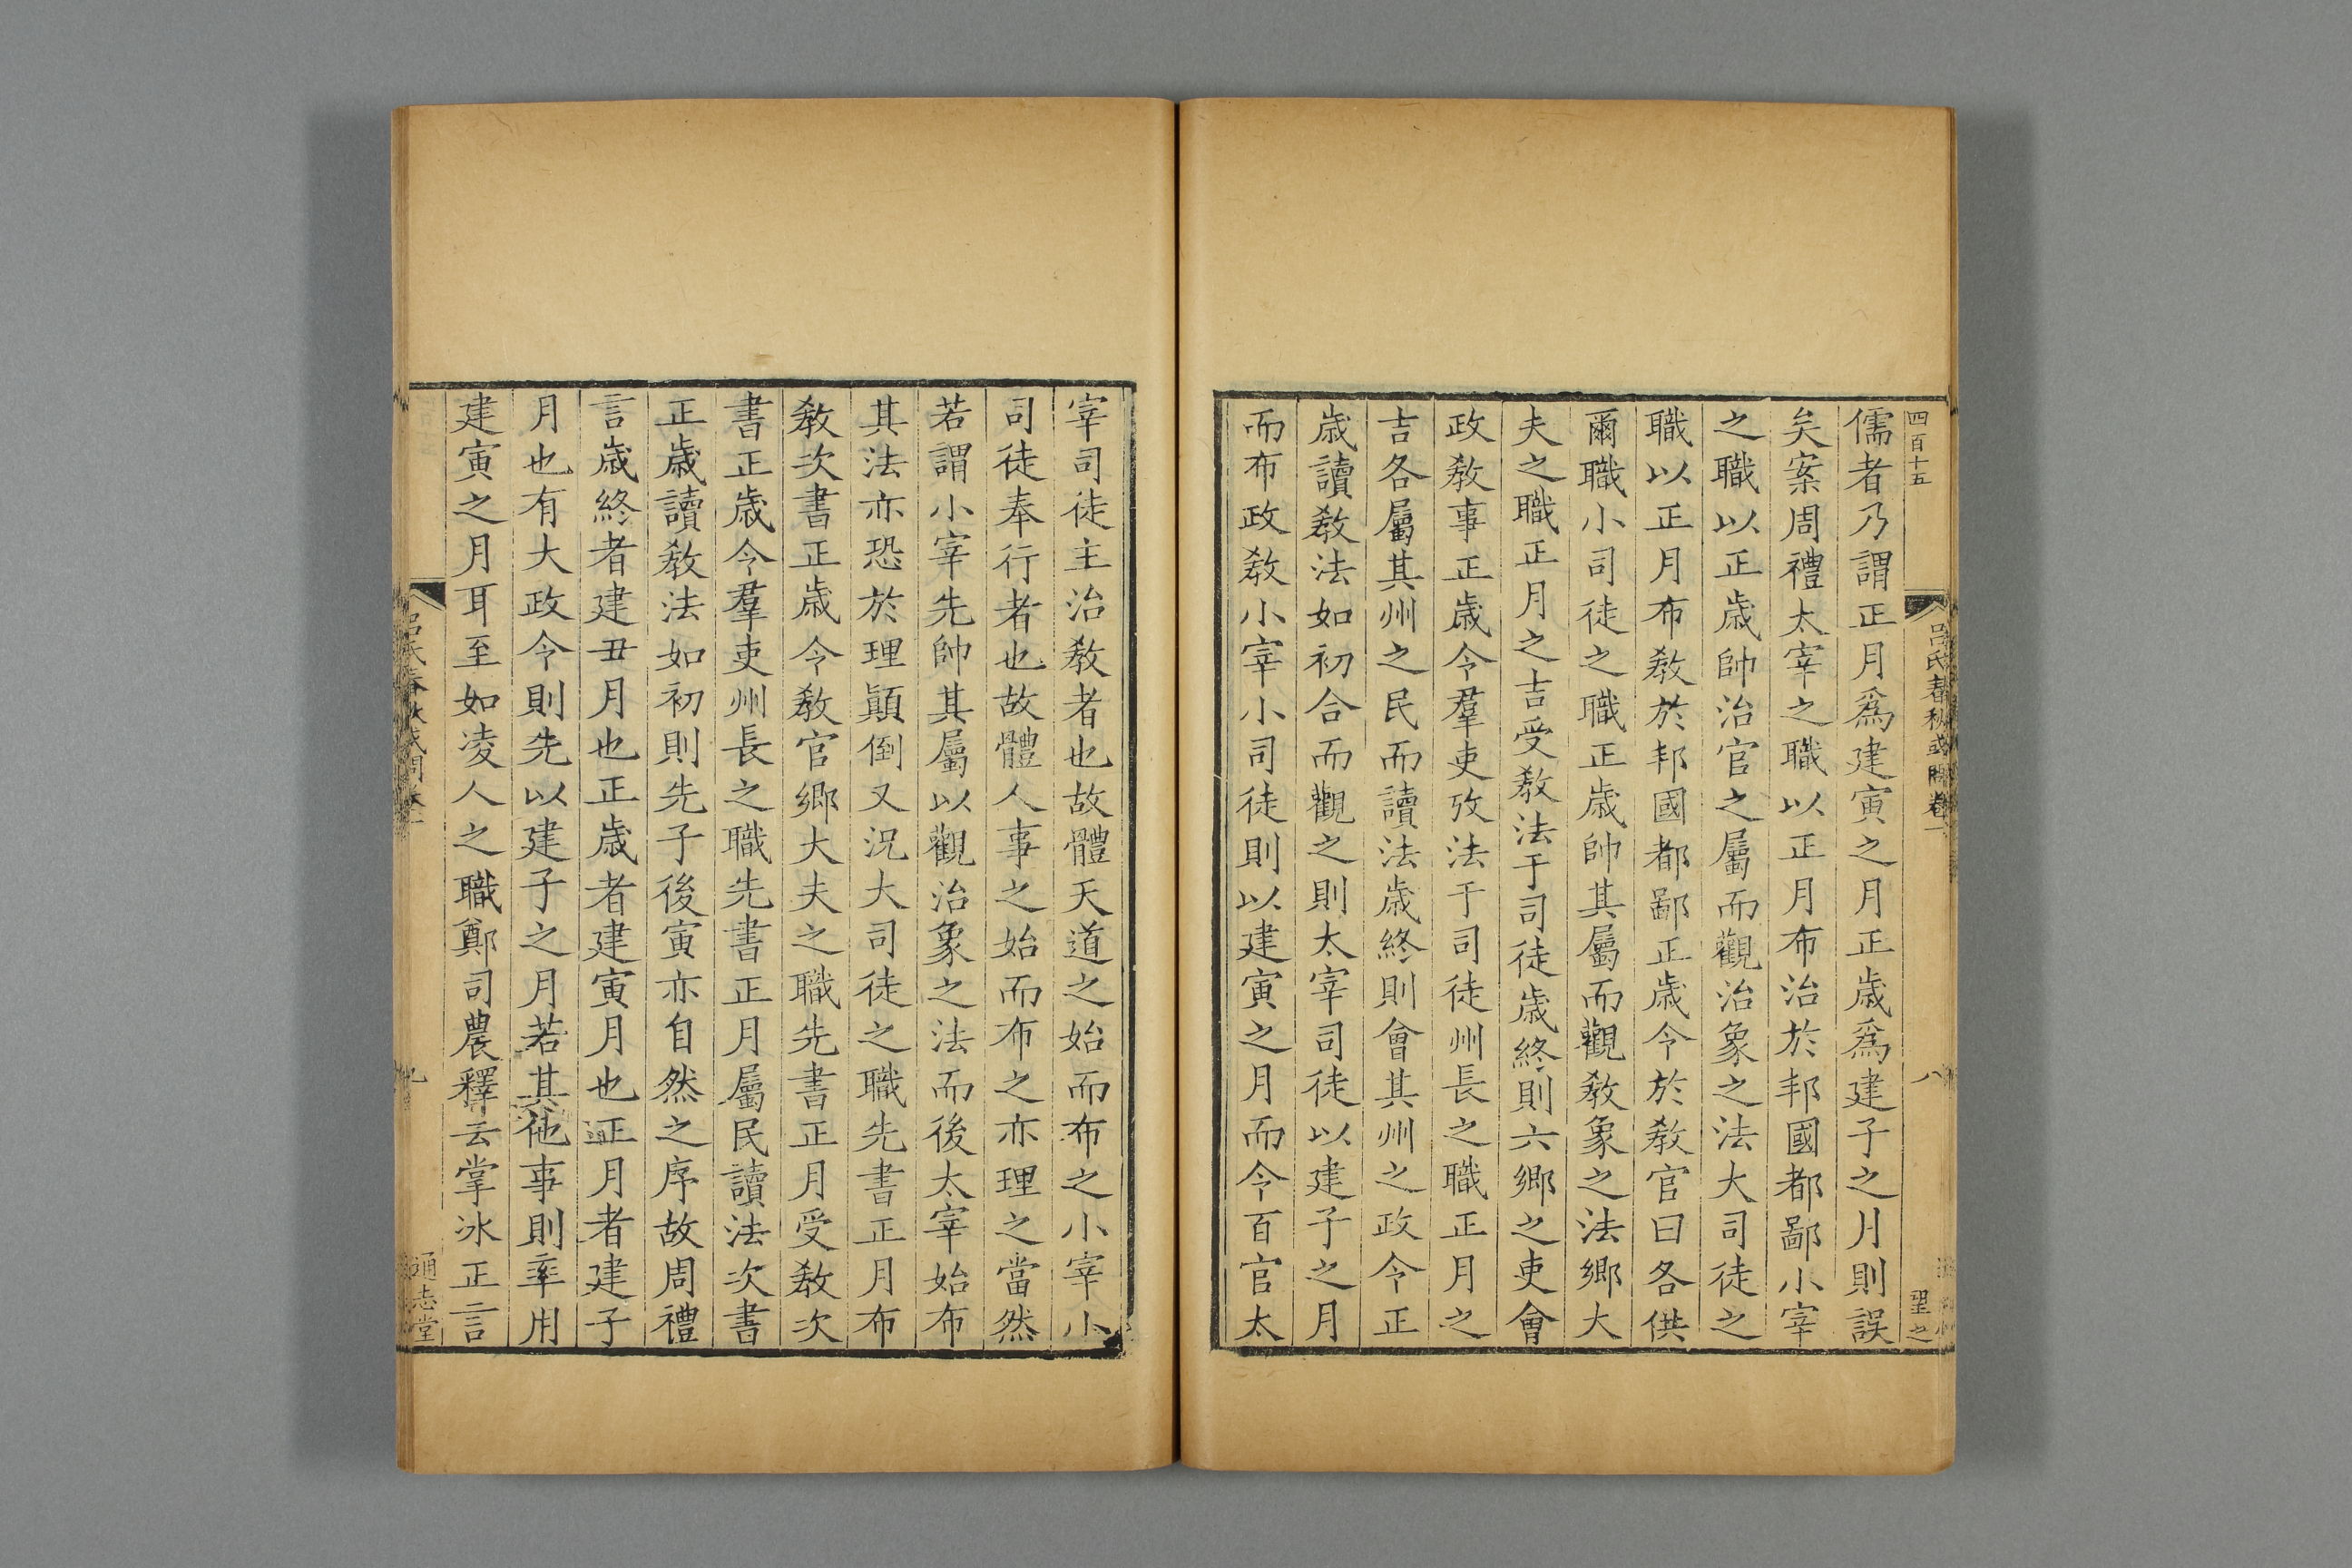 四百十五
呂氏春秋或問卷一
八
儒者乃謂正月爲建寅之月正歲爲建子之月則誤
矣案周禮太宰之職以正月布治於邦國都鄙小宰
之職以正歲帥治官之屬而觀治象之法大司徒之
職以正月布敎於邦國都鄙正歲令於敎官曰各供
爾職小司徒之職正歲帥其屬而觀敎象之法鄉大
夫之職正月之吉受敎法于司徒歲終則六鄉之吏會
政敎事正歲令羣吏攷法于司徒州長之職正月之
吉各屬其州之民而讀法歲終則會其州之政令正
歲讀敎法如初合而觀之則太宰司徒以建子之月
而布政敎小宰小司徒則以建寅之月而令百官太
宰司徒主治敎者也故體天道之始而布之小宰小
司徒奉行者也故體人事之始而布之亦理之當然
若謂小宰先帥其屬以觀治象之法而後太宰始布
其法亦恐於理顚倒又況大司徒之職先書正月布
敎次書正歲令敎官鄉大夫之職先書正月受敎次
書正歲令羣吏州長之職先書正月屬民讀法次書
正歲讀敎法如初則先子後寅亦自然之序故周禮
言歲終者建丑月也正歲者建寅月也正月者建子
月也有大政令則先以建子之月若其他事則率用
建寅之月耳至如凌人之職鄭司農釋云掌冰正言
呂氏春秋或問卷一
九
通志堂